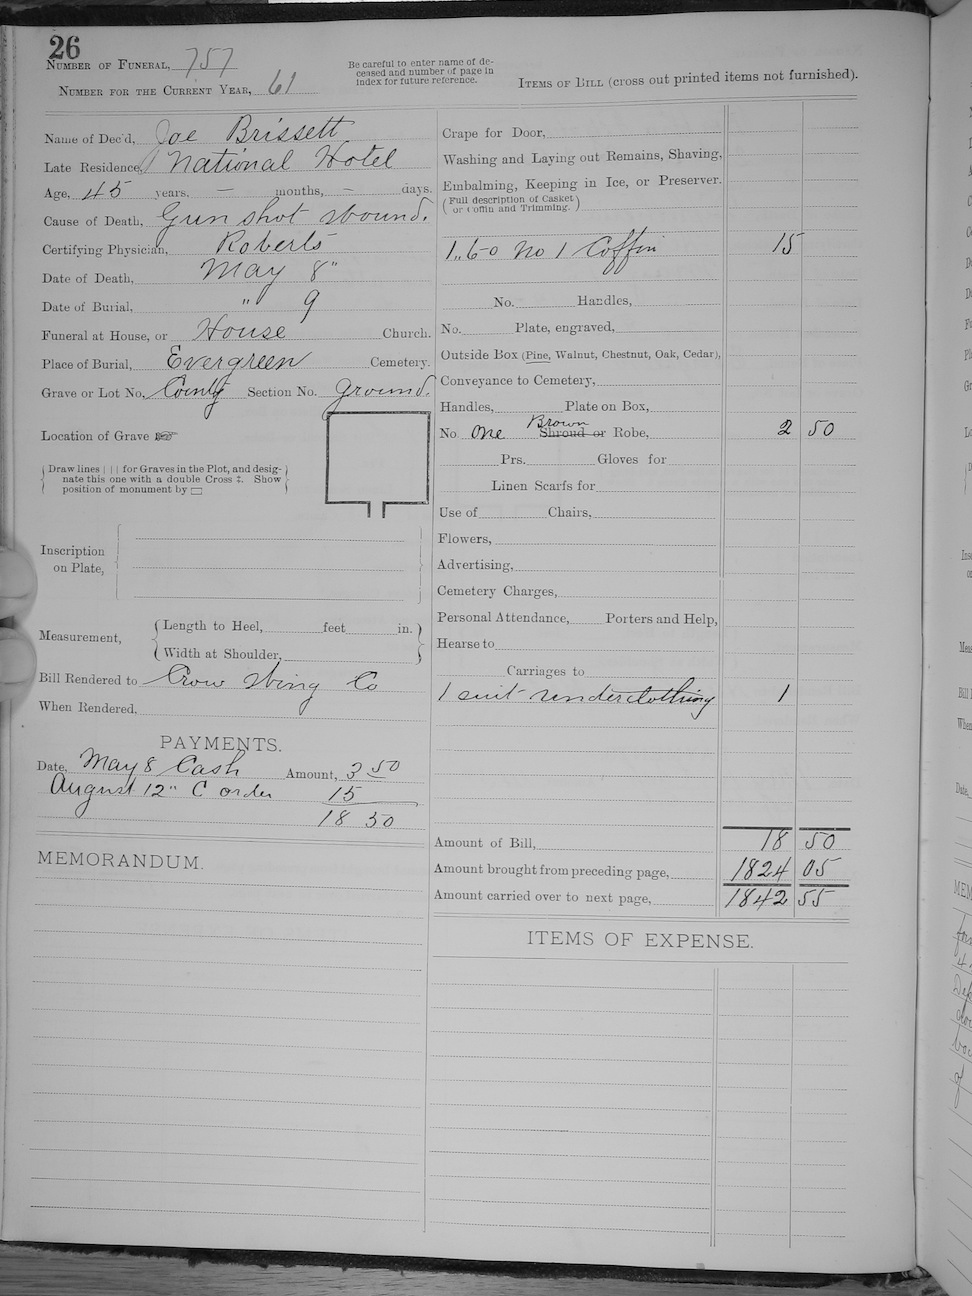 26
NUMBER OF FUNERAL, 757
NUMBER FOR THE CURRENT YEAR, 61
Be careful to enter name of de-
ceased and number of page in
index for future reference.
ITEMS OF BILL (cross out printed items not furnished).
Name of Dec'd, Joe Brissett
Late Residence, National Hotel
Age, 45 years, — months, — days.
Cause of Death, Gun shot wound.
Certifying Physician, Roberts
Date of Death, May 8"
Date of Burial, " 9
Funeral at House, or House Church.
Place of Burial, Evergreen Cemetery.
Grave or Lot No. County Section No. Ground.
Location of Grave ☞
Draw lines | | | for Graves in the Plot, and desig-
nate this one with a double Cross ‡. Show
position of monument by ▭
Inscription
on Plate,
Measurement,
Length to Heel, feet in.
Width at Shoulder,
Bill Rendered to Crow Wing Co
When Rendered,
PAYMENTS.
Date, May 8 Cash Amount, 3 50
August 12" C order 15
18 50
MEMORANDUM.
Crape for Door,
Washing and Laying out Remains, Shaving,
Embalming, Keeping in Ice, or Preserver.
(Full description of Casket
or Coffin and Trimming.)
1..6-0 No 1 Coffin 15
No. Handles,
No. Plate, engraved,
Outside Box (Pine, Walnut, Chestnut, Oak, Cedar),
Conveyance to Cemetery,
Handles, Plate on Box,
No. One Shroud or Brown Robe, 2 50
Prs. Gloves for
Linen Scarfs for
Use of Chairs,
Flowers,
Advertising,
Cemetery Charges,
Personal Attendance, Porters and Help,
Hearse to
Carriages to
1 suit underclothing 1
Amount of Bill, 18 50
Amount brought from preceding page, 1824 05
Amount carried over to next page, 1842 55
ITEMS OF EXPENSE.